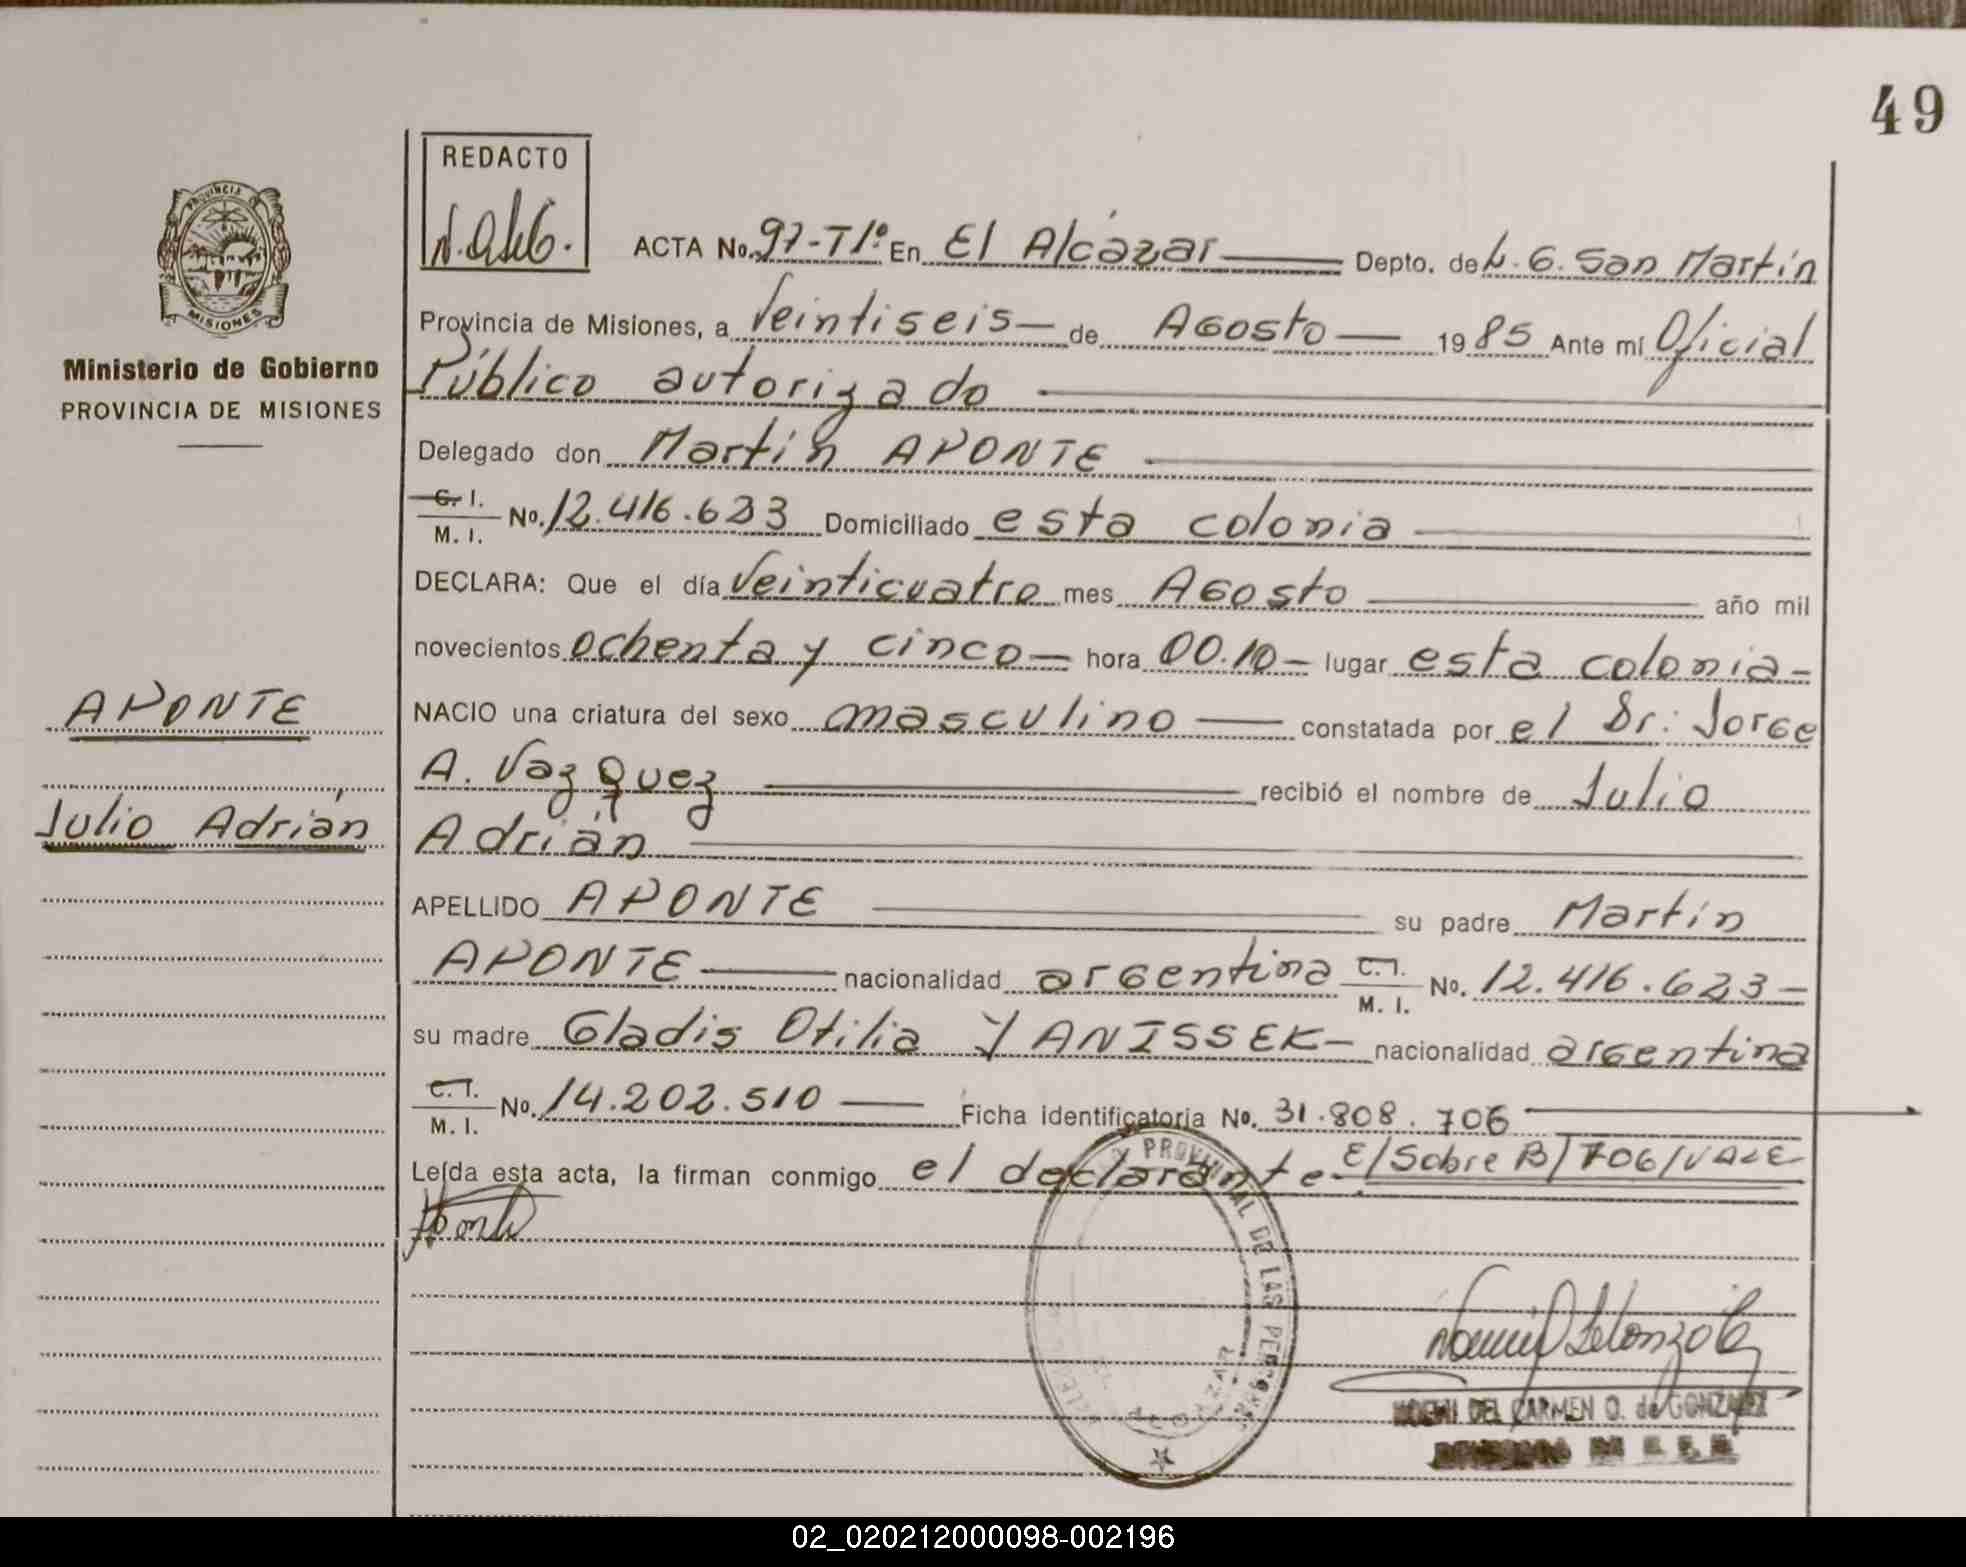 49
REDACTO
PROVINCIA
MISIONES
Ministerio de Gobierno
PROVINCIA DE MISIONES
ACTA No. 97-T1º En El Alcázar Depto. de L. G. San Martín
Provincia de Misiones, a Veintiseis de Agosto 1985 Ante mí Oficial
Público autorizado
Delegado don Martín APONTE
C. I.
M. I. No. 12.416.623 Domiciliado esta colonia
DECLARA: Que el día Veinticuatro mes Agosto año mil
novecientos ochenta y cinco hora 00.10 lugar esta colonia
NACIO una criatura del sexo masculino constatada por el Dr: Jorge
A. Vazquez recibió el nombre de Julio
Adrián
APELLIDO APONTE su padre Martín
APONTE nacionalidad argentina C. I. M. I. No. 12.416.623
su madre Gladis Otilia YANISSEK nacionalidad argentina
C. I.
M. I. No. 14.202.510 Ficha identificatoria No. 31.808.706
Leída esta acta, la firman conmigo el declarante E/Sobre B/706/VALE
APONTE
Julio Adrián
PROVINCIAL DE LAS PERSONAS
ALCAZAR
NOEMI DEL CARMEN O. de GONZALEZ
02_020212000098-002196